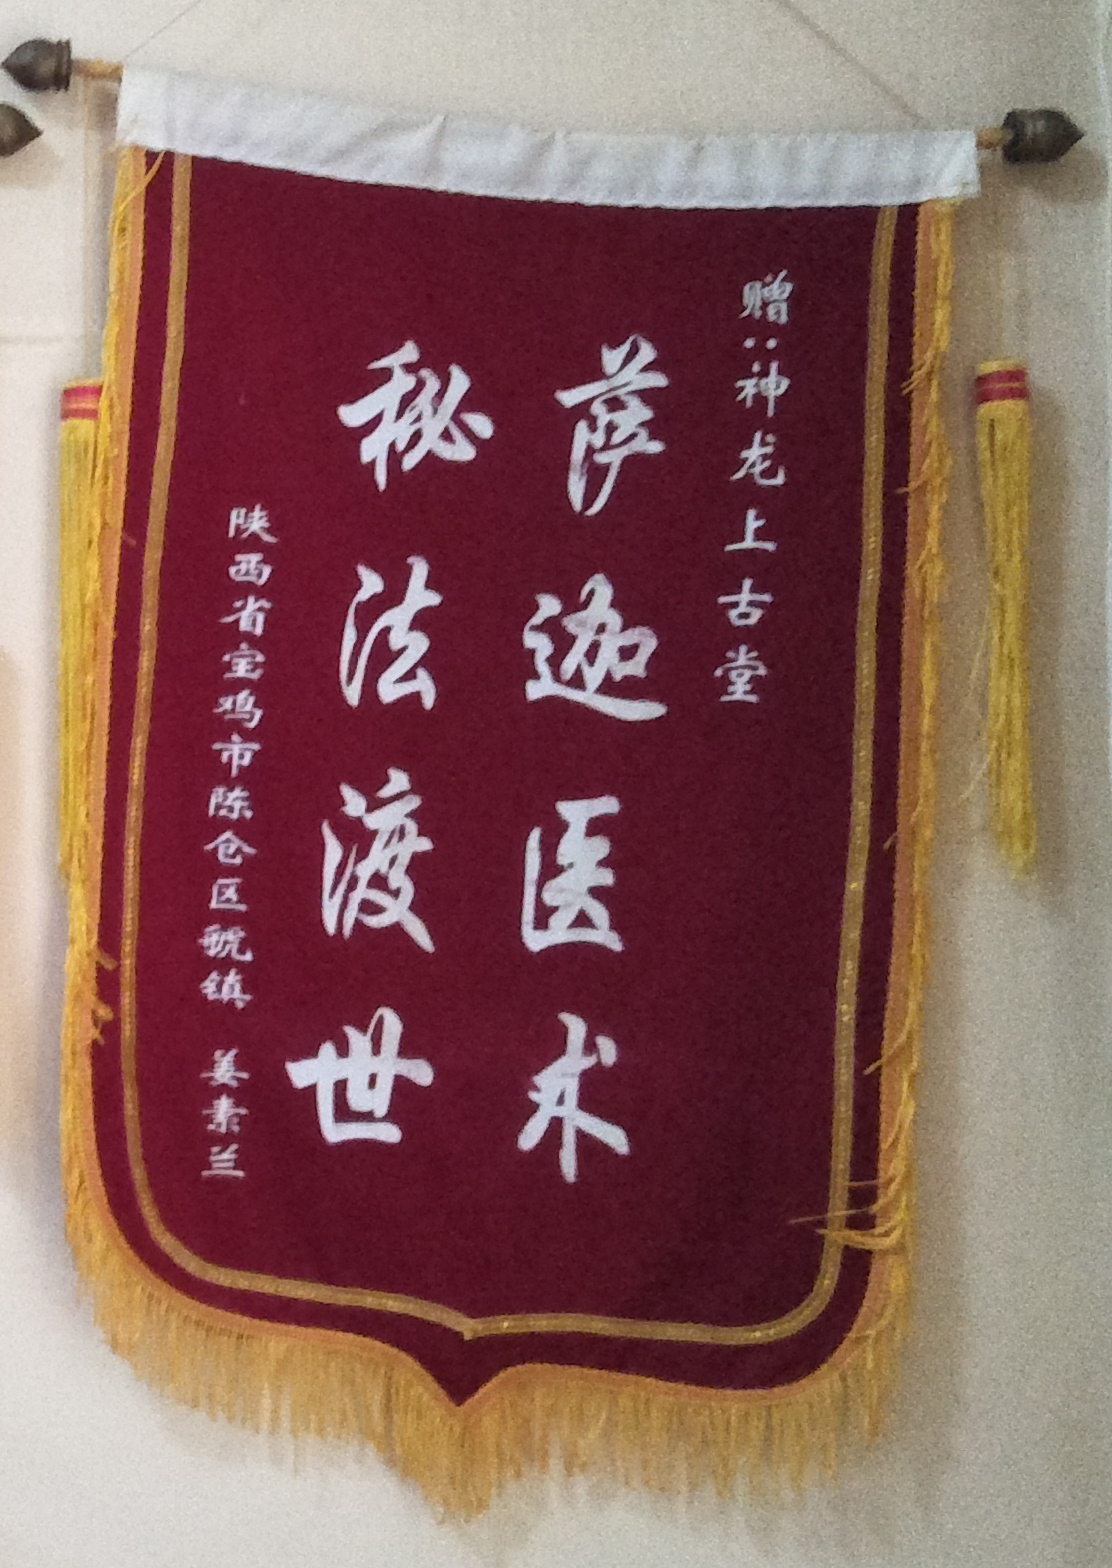 赠：神龙上古堂
萨迦医术
秘法渡世
陕西省宝鸡市陈仓区虢镇 姜素兰